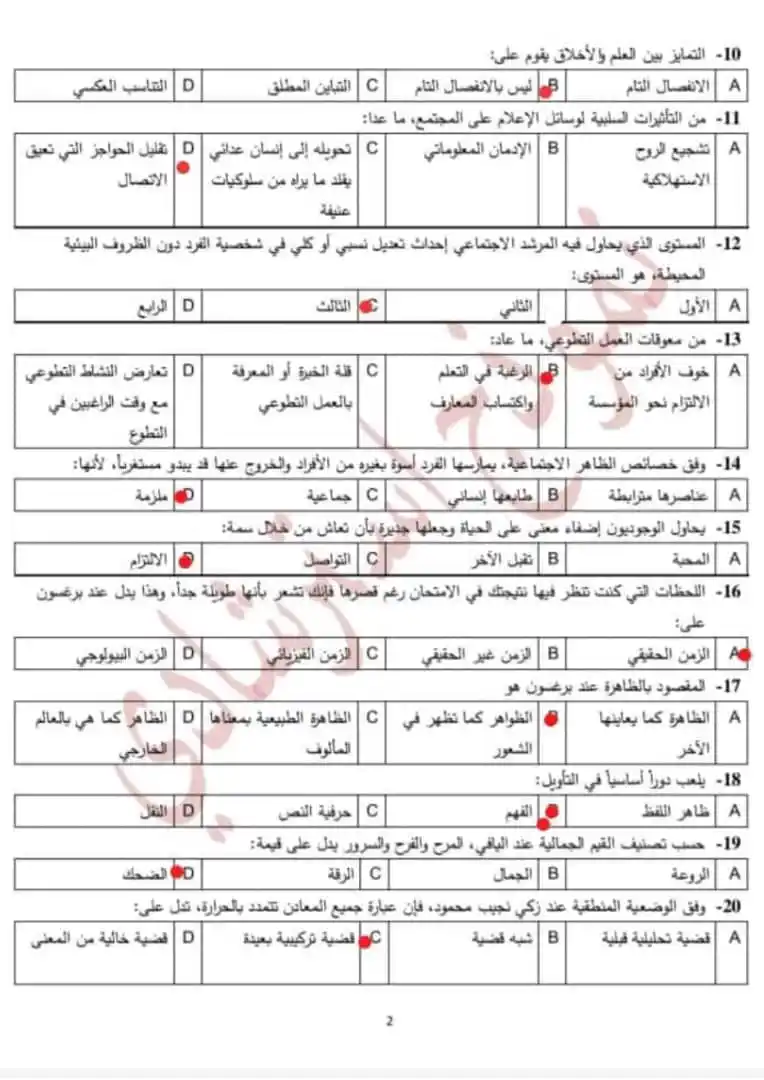 10- التمايز بين العلم والأخلاق يقوم على:
A الانفصال التام B ليس بالانفصال التام C التباين المطلق D التناسب العكسي
11- من التأثيرات السلبية لوسائل الإعلام على المجتمع، ما عدا:
A تشجيع الروح B الإدمان المعلوماتي C تحويله إلى إنسان عدائي D تقليل الحواجز التي تعيق
الاستهلاكية يقلد ما يراه من سلوكيات الاتصال
عنيفة
12- المستوى الذي يحاول فيه المرشد الاجتماعي إحداث تعديل نسبي أو كلي في شخصية الفرد دون الظروف البيئية
المحيطة، هو المستوى:
A الأول الثاني C الثالث D الرابع
13- من معوقات العمل التطوعي، ما عاد:
A خوف الأفراد من B الرغبة في التعلم C قلة الخبرة أو المعرفة D تعارض النشاط التطوعي
الالتزام نحو المؤسسة واكتساب المعارف بالعمل التطوعي مع وقت الراغبين في
التطوع
14- وفق خصائص الظاهر الاجتماعية، يمارسها الفرد أسوة بغيره من الأفراد والخروج عنها قد يبدو مستغرباً، لأنها:
A عناصرها مترابطة B طابعها إنساني C جماعية D ملزمة
15- يحاول الوجوديون إضفاء معنى على الحياة وجعلها جديرة بأن تعاش من خلال سمة:
A المحبة B تقبل الآخر C التواصل D الالتزام
16- اللحظات التي كنت تنظر فيها نتيجتك في الامتحان رغم قصرها فإنك تشعر بأنها طويلة جداً، وهذا يدل عند برغسون
على:
A الزمن الحقيقي B الزمن غير الحقيقي C الزمن الفيزيائي D الزمن البيولوجي
17- المقصود بالظاهرة عند برغسون هو
A الظاهرة كما يعاينها B الظواهر كما تظهر في C الظاهرة الطبيعية بمعناها D الظاهر كما هي بالعالم
الآخر الشعور المألوف الخارجي
18- يلعب دوراً أساسياً في التأويل:
A ظاهر اللفظ B الفهم C حرفية النص D النقل
19- حسب تصنيف القيم الجمالية عند اليافي، المرح والفرح والسرور يدل على قيمة:
A الروعة B الجمال C الرقة D الضحك
20- وفق الوضعية المنطقية عند زكي نجيب محمود، فإن عبارة جميع المعادن تتمدد بالحرارة، تدل على:
A قضية تحليلية قبلية B شبه قضية C قضية تركيبية بعيدة D قضية خالية من المعنى
نموذج استرشادي
2